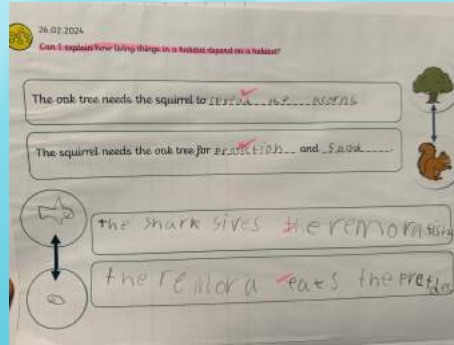 26.02.2024
Can I explain how living things in a habitat depend on a habitat?
The oak tree needs the squirrel to spread the acorns
The squirrel needs the oak tree for protection and food.
the shark gives the remora
the remora eats the